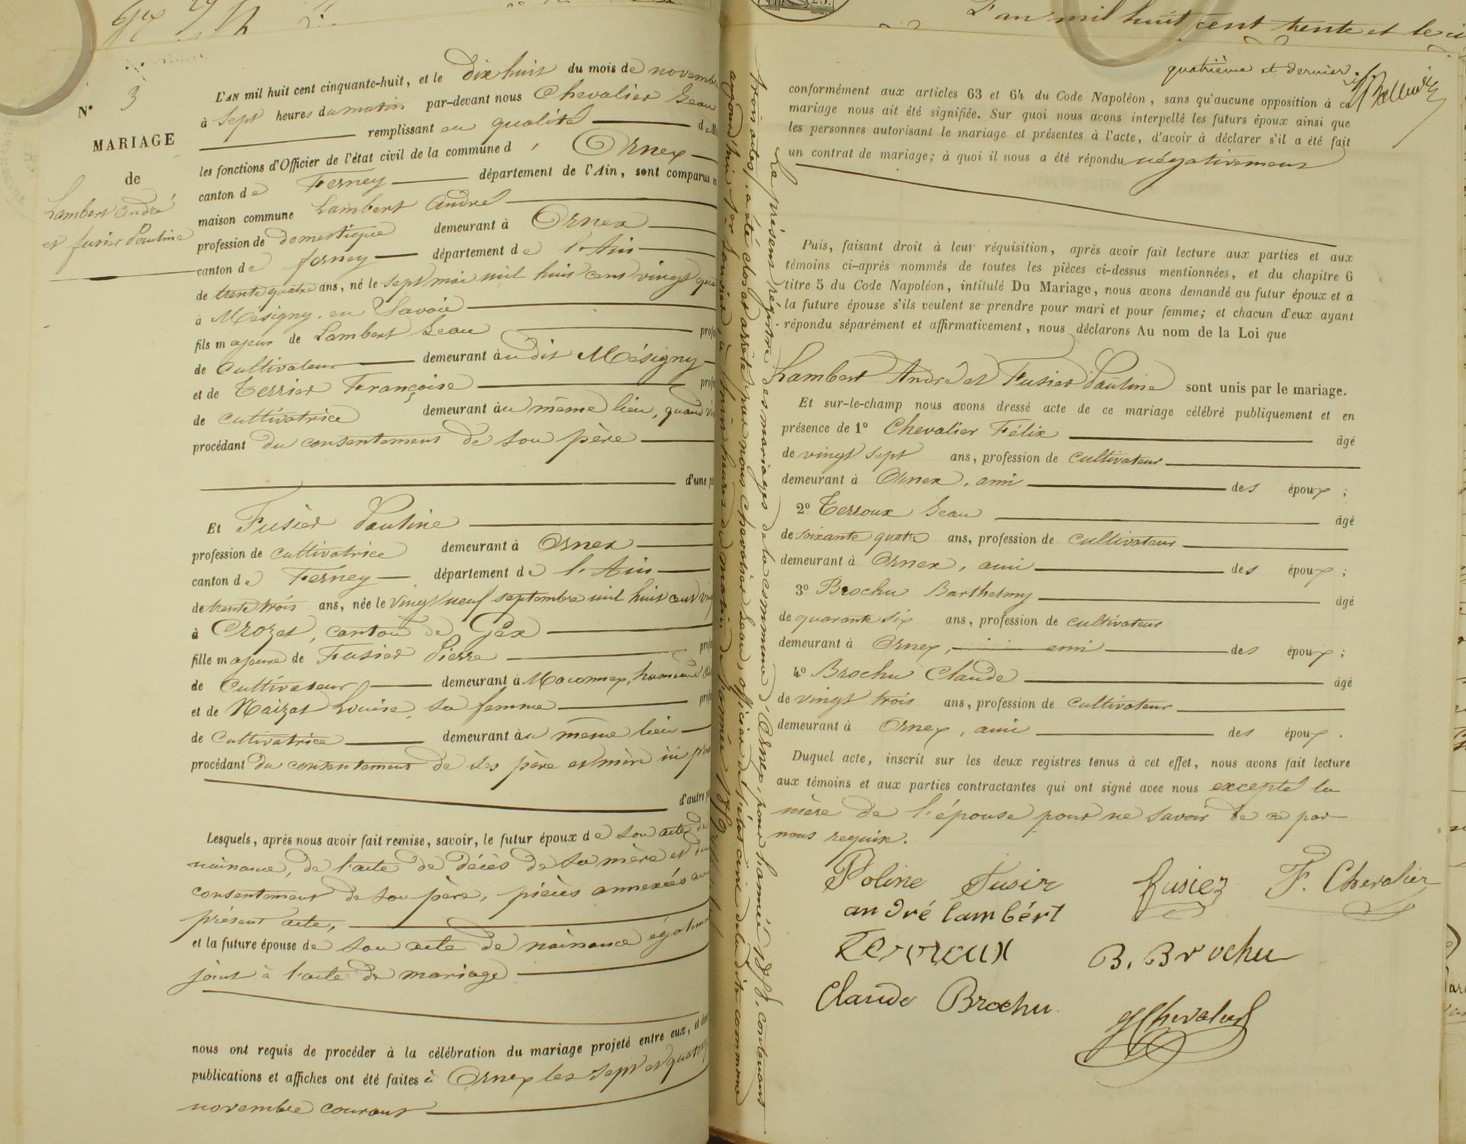 N° 3
MARIAGE
de
Lambert André
et Fusier Pauline
L'AN mil huit cent cinquante-huit, et le dix huit du mois de novembre
à sept heures du matin par-devant nous Chevalier Jean
remplissant en qualité de
les fonctions d'Officier de l'état civil de la commune d'Ornex
canton de Ferney département de l'Ain, sont comparus en
maison commune Lambert André
profession de domestique demeurant à Ornex
canton de ferney département de l'Ain
de trente quatre ans, né le sept mai mil huit cent vingt quatre
à Mésigny en Savoie
fils majeur de Lambert Jean
de Cultivateur demeurant au dit Mésigny
et de Terrier Françoise
de cultivatrice demeurant au même lieu, quand
procédant du consentement de son père
d'une
Et Fusier Pauline
profession de cultivatrice demeurant à Ornex
canton de Ferney département de l'Ain
de trente trois ans, née le vingt neuf septembre mil huit cent
à Crozet, canton de Gex
fille majeure de Fusier Pierre
de Cultivateur demeurant à Maconnex, hameau
et de Maizat Louise, sa femme
de Cultivatrice demeurant au même lieu
procédant du consentement de ses père et mère ici
d'autre
Lesquels, après nous avoir fait remise, savoir, le futur époux de son acte de
naissance, de l'acte de décès de sa mère et du
consentement de son père, pièces annexées au
présent acte,
et la future épouse de son acte de naissance
joint à l'acte de mariage
nous ont requis de procéder à la célébration du mariage projeté entre eux, et dont
publications et affiches ont été faites à Ornex les sept et quatorze
novembre courant
Le présent régistre des mariages de la commune d'Ornex, pour l'année 1858, contenant
trois actes, a été clos et arrêté par nous Chevalier Jean, officier de l'état civil de la dite commune
L'an mil huit cent trente et le
quatrième et dernier
conformément aux articles 63 et 64 du Code Napoléon, sans qu'aucune opposition à ce
mariage nous ait été signifiée. Sur quoi nous avons interpellé les futurs époux ainsi que
les personnes autorisant le mariage et présentes à l'acte, d'avoir à déclarer s'il a été fait
un contrat de mariage; à quoi il nous a été répondu négativement
Puis, faisant droit à leur réquisition, après avoir fait lecture aux parties et aux
témoins ci-après nommés de toutes les pièces ci-dessus mentionnées, et du chapitre 6
titre 5 du Code Napoléon, intitulé Du Mariage, nous avons demandé au futur époux et à
la future épouse s'ils veulent se prendre pour mari et pour femme; et chacun d'eux ayant
répondu séparément et affirmativement, nous déclarons Au nom de la Loi que
Lambert André et Fusier Pauline sont unis par le mariage.
Et sur-le-champ nous avons dressé acte de ce mariage célébré publiquement et en
présence de 1° Chevalier Félix âgé
de vingt sept ans, profession de cultivateur
demeurant à Ornex, ami des époux;
2° Terroux Jean âgé
de soixante quatre ans, profession de cultivateur
demeurant à Ornex, ami des époux;
3° Brochu Barthelmy âgé
de quarante six ans, profession de cultivateur
demeurant à Ornex, ami des époux;
4° Brochu Claude âgé
de vingt trois ans, profession de cultivateur
demeurant à Ornex, ami des époux.
Duquel acte, inscrit sur les deux registres tenus à cet effet, nous avons fait lecture
aux témoins et aux parties contractantes qui ont signé avec nous excepté la
mère de l'épouse pour ne savoir de ce par
nous requix.
Poline Fusir fusier F. Chevalier
andré lambért
Terroux B. Brochu
Claude Brochu
J Chevalier